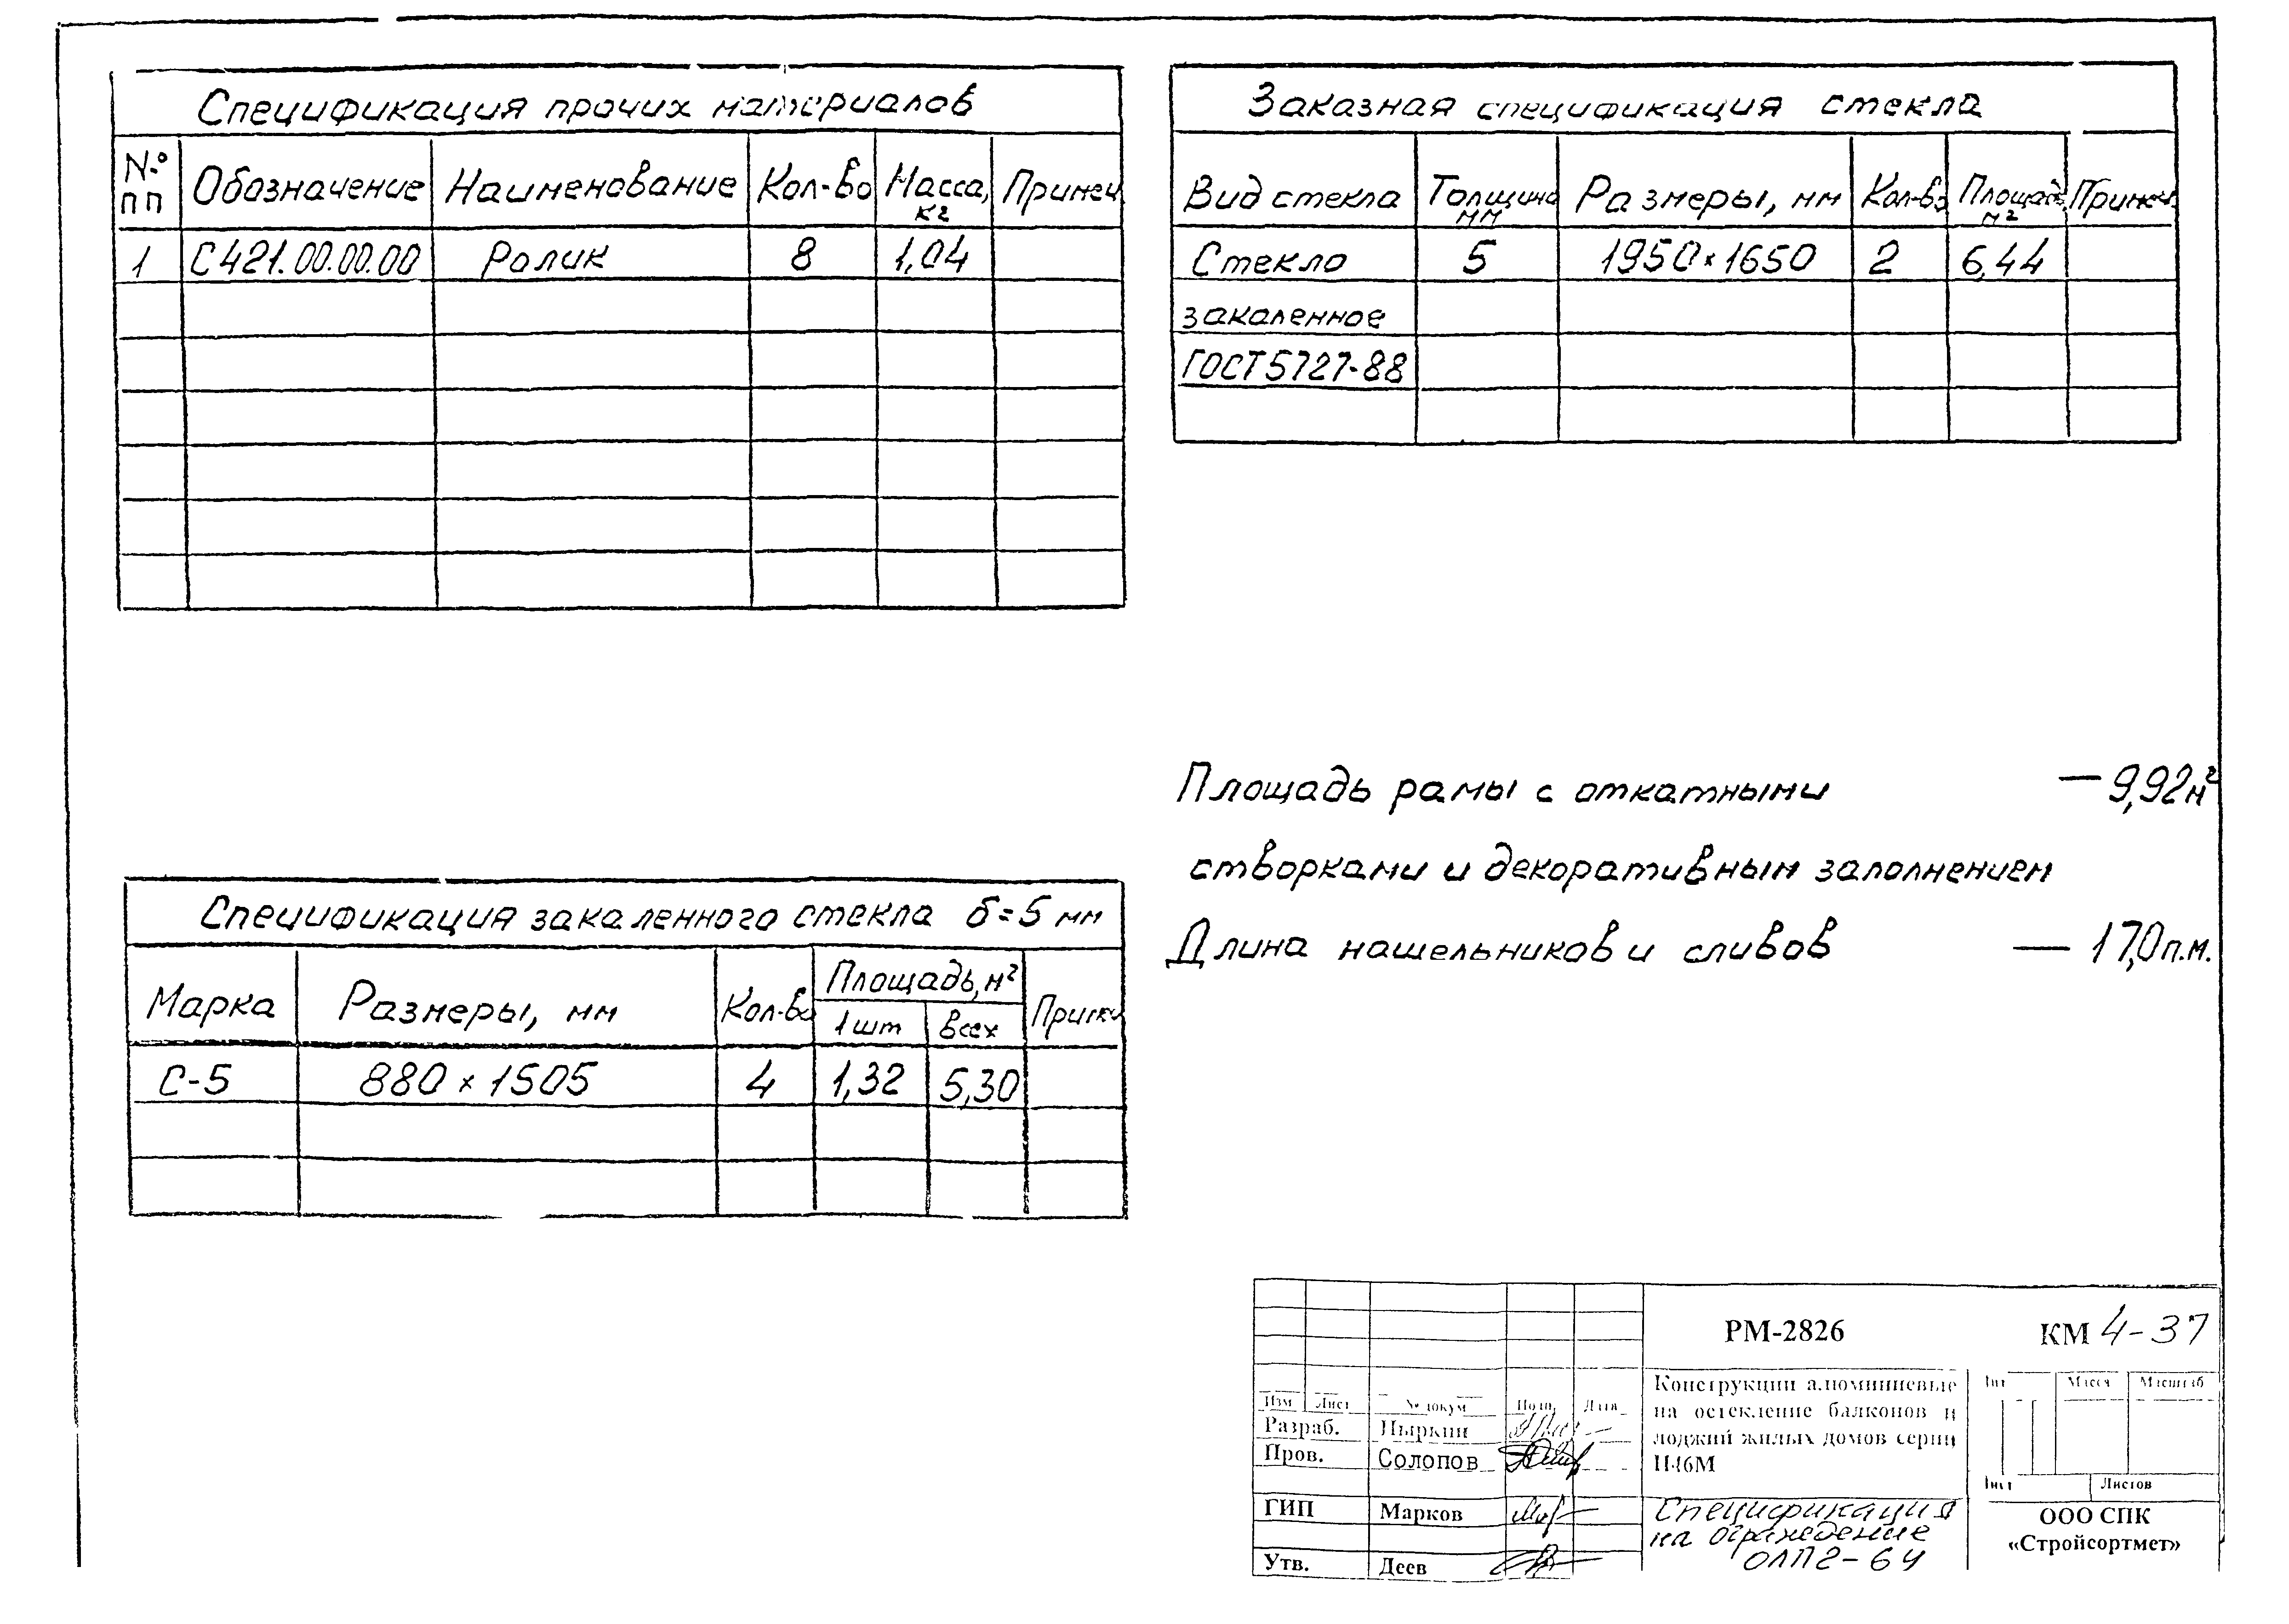 Спецификация прочих материалов
№ пп Обозначение Наименование Кол-во Масса, кг Примеч.
1 С421.00.00.00 Ролик 8 1,04
Заказная спецификация стекла
Вид стекла Толщина мм Размеры, мм Кол-во Площадь, м² Примеч.
Стекло 5 1950×1650 2 6,44
закаленное
ГОСТ 5727-88
Площадь рамы с откатными — 9,92 м²
створками и декоративным заполнением
Длина нащельников и сливов — 17,0 п.м.
Спецификация закаленного стекла δ=5 мм
Марка Размеры, мм Кол-во Площадь, м² Примеч
1 шт всех
С-5 880 × 1505 4 1,32 5,30
РМ-2826 КМ 4-37
Изм Лист № докум Подп. Дата
Разраб. Ныркин
Пров. Солопов
ГИП Марков
Утв. Деев
Конструкции алюминиевые
на остекление балконов и
лоджий жилых домов серии
П46М
Лит Масса Масштаб
Лист Листов
Спецификация
на ограждение
ОЛП2-6У
ООО СПК
«Стройсортмет»